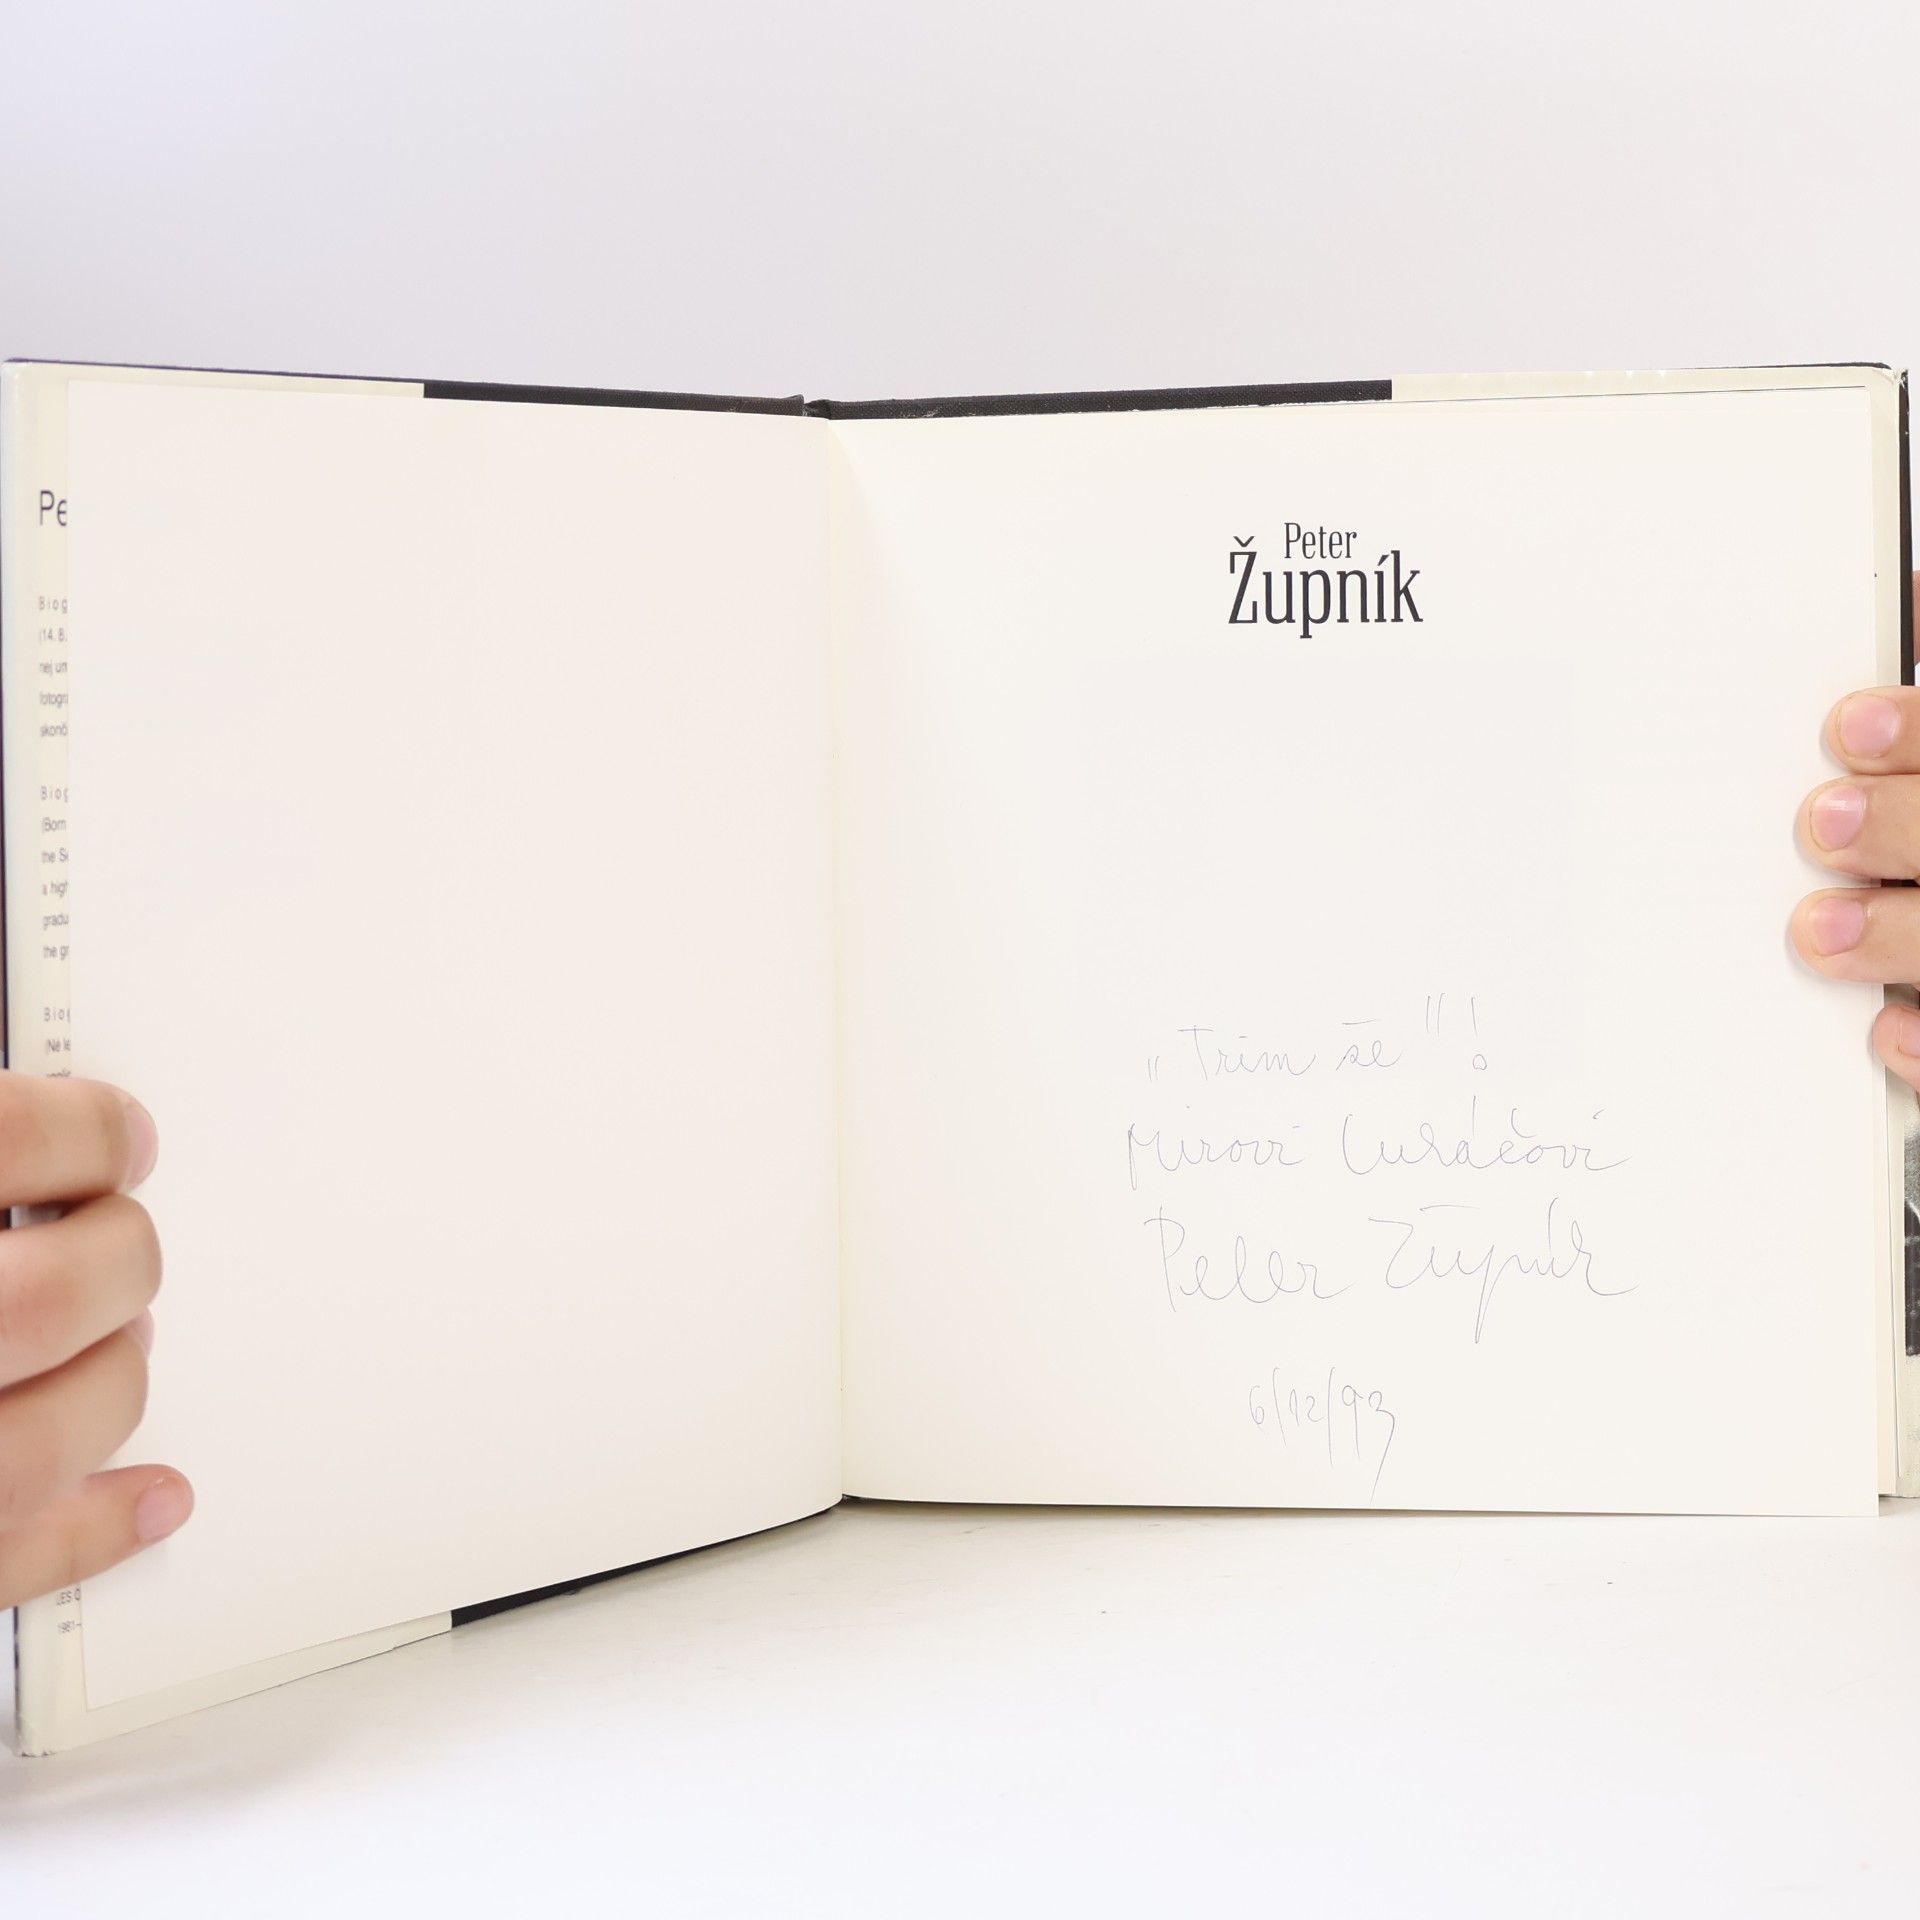 Pe
Biog
(14. 8.
nej, um
fotogra
skonč
Biog
(Born
the Se
a high
gradu
the gr
Biog
(Né le
LES C
1981–
Peter
Župník
„Trim se"!
Mirovi
Peter Župník
6/12/93